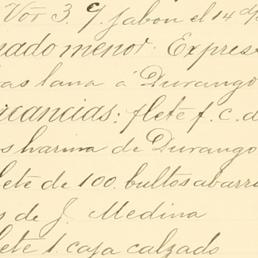 Vor 3. 9. Jabon el 14 dp
nado menor. Expres
as lana á Durango
rcancias: flete f. c. d
s harina de Durango
lete de 100. bultos abarr
s de J. Medina
lete 1. caja calzado